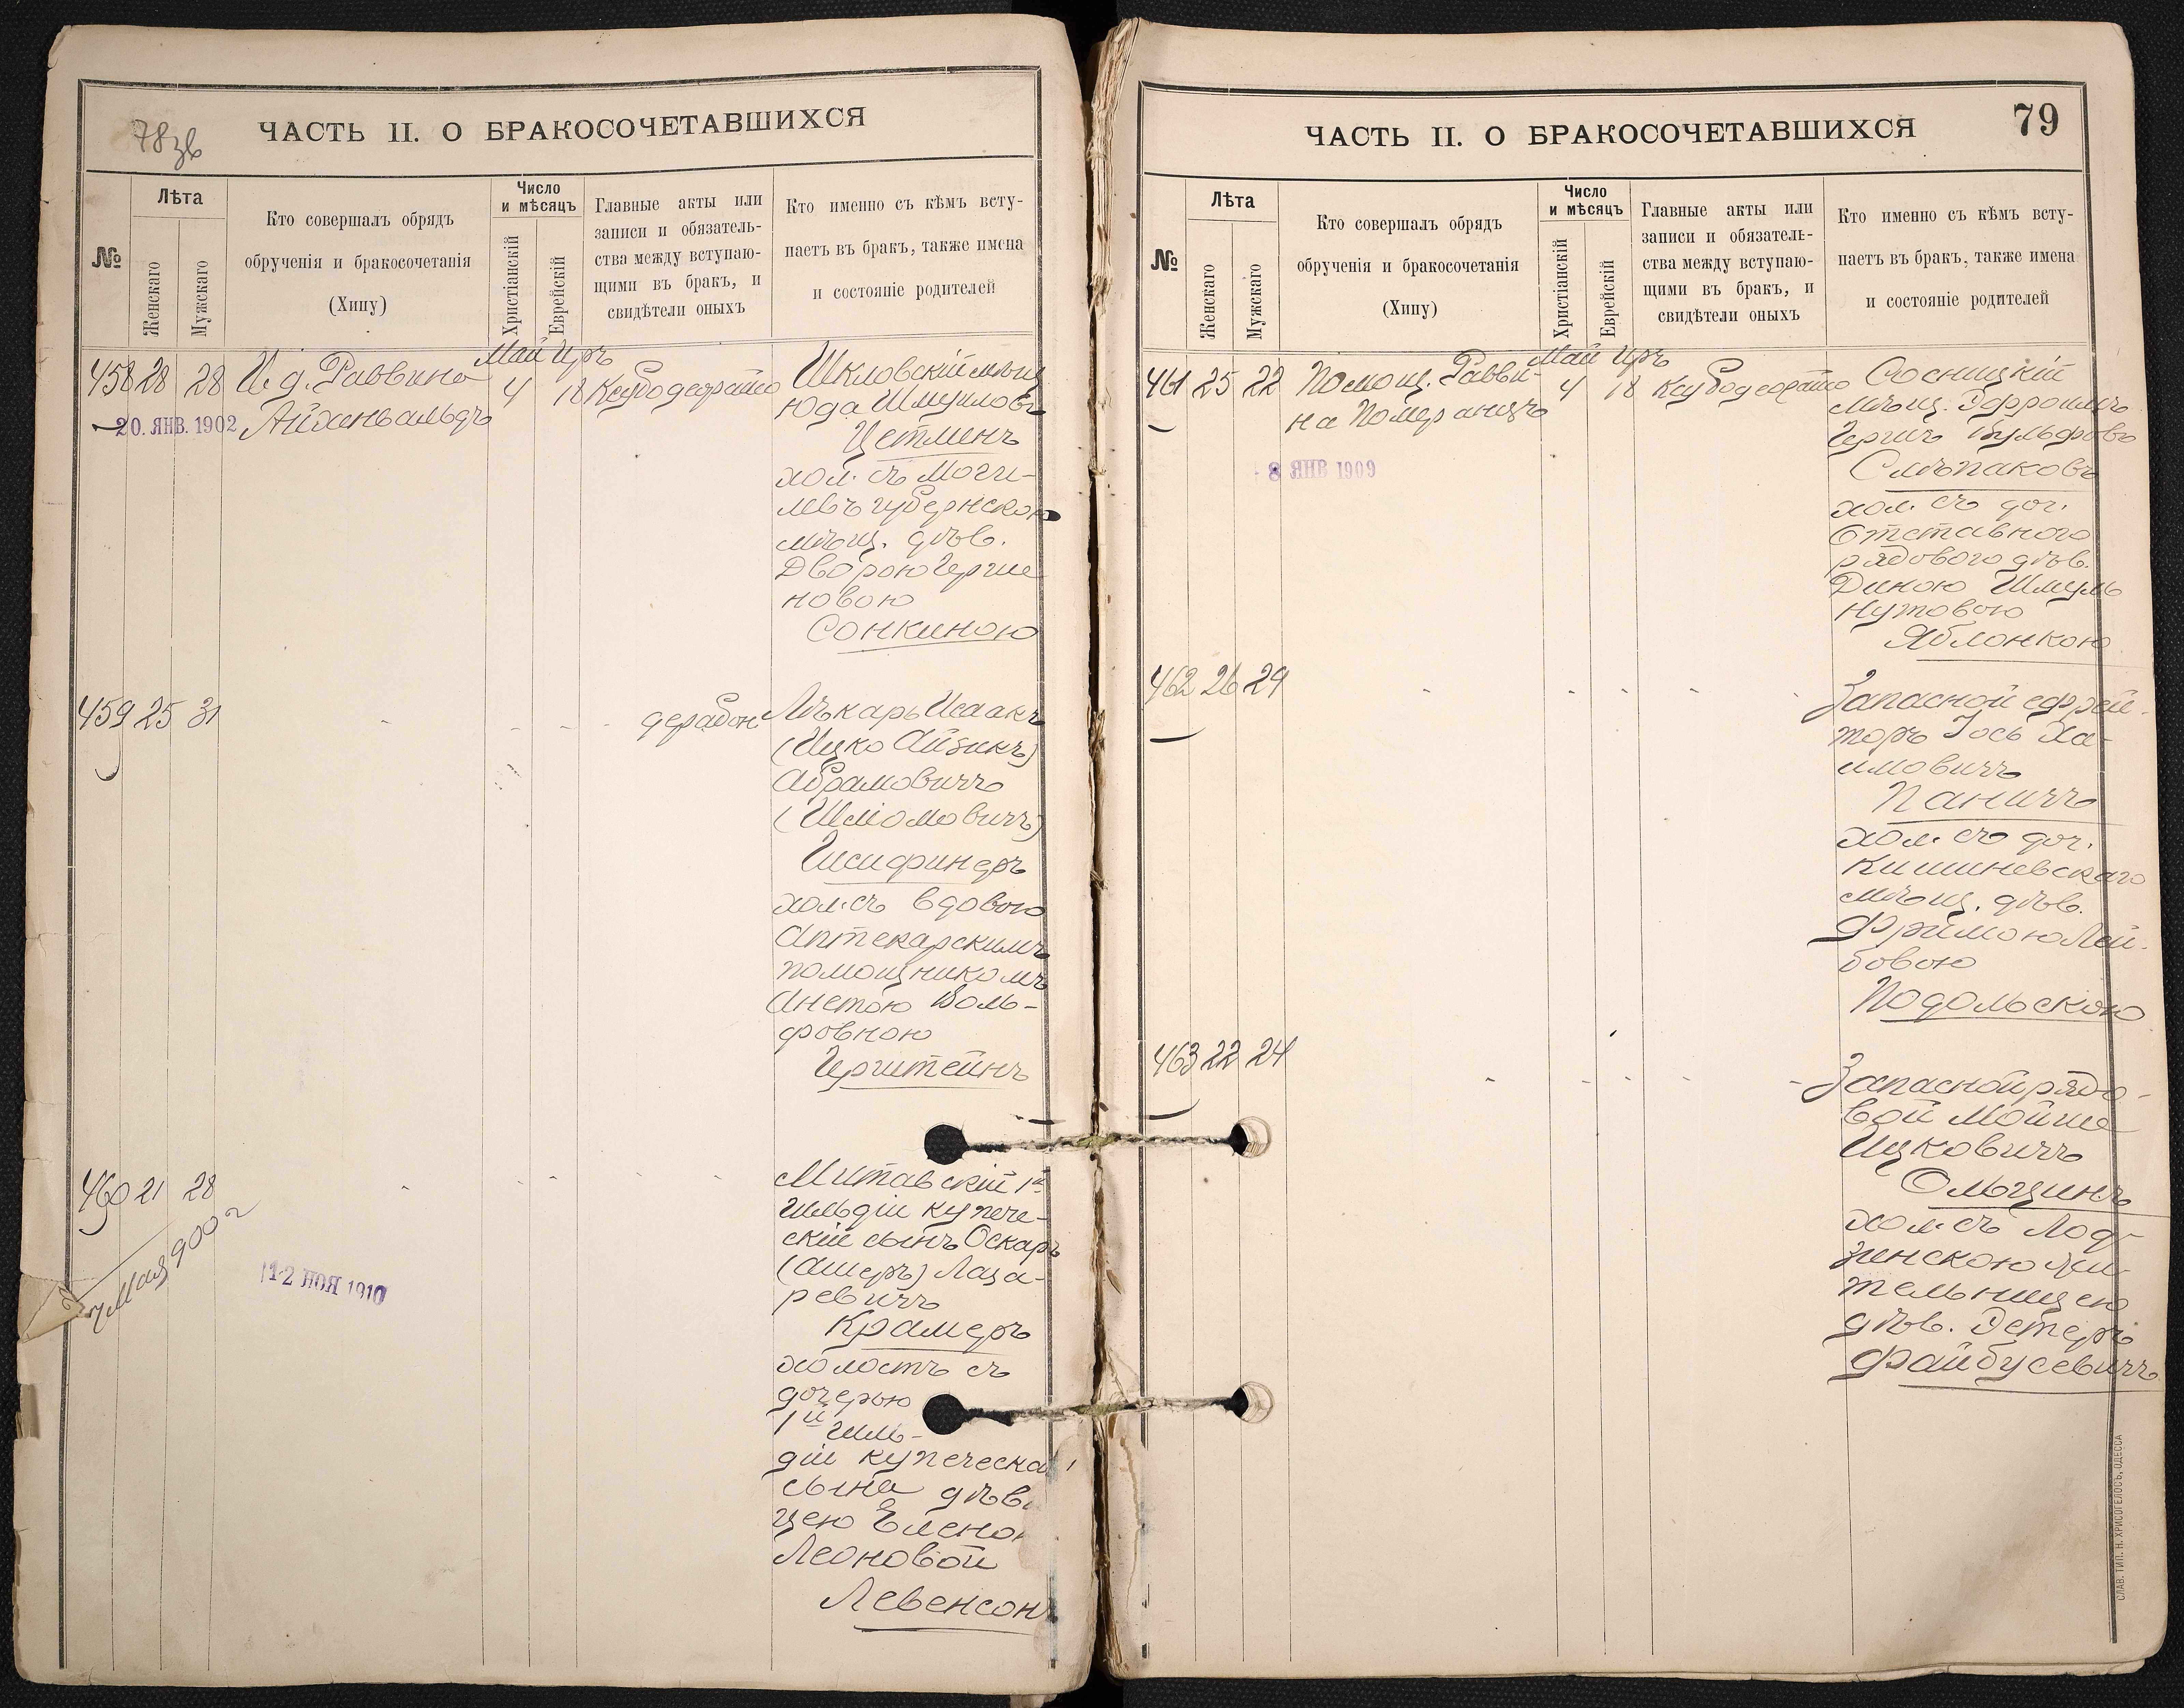 78 зв
ЧАСТЬ II. О БРАКОСОЧЕТАВШИХСЯ
№
Лѣта
Женскаго
Мужскаго
Кто совершалъ обрядъ
обрученія и бракосочетанія
(Хипу)
Число
и мѣсяцъ
Христіанскій
Еврейскій
Главные акты или
записи и обязатель-
ства между вступаю-
щими въ бракъ, и
свидѣтели оныхъ
Кто именно съ кѣмъ всту-
паетъ въ бракъ, также имена
и состояніе родителей
Май Иръ
458 28 28 И. д. Раввина 4 18
Айхенвальдъ
20. ЯНВ. 1902
Шкловскій мѣщ
Юда Шмуиловъ
Цетлинъ
хол. съ Моги-
левъ губернскою
мѣщ. дѣв.
Дворою Герше
новою
Сонкиною
459 25 31
Лѣкарь Исаакъ
(Ицко Айзикъ)
Абрамовичъ
(Шліомовичъ)
хол. съ вдовою
Аптекарскимъ
помощникомъ
Анетою Воль-
фовною
Герштейнъ
460 21 28
4 Мая 900 г
12 НОЯ 1910
Митавскій 1й
гильдіи купече-
скій сынъ Оскаръ
(Ашеръ) Лаза-
ревичъ
Крамеръ
холостъ съ
дочерью
1й гиль-
діи купеческа
сына дѣви
цею Елено
Леоновой
Левенсонъ
79
ЧАСТЬ II. О БРАКОСОЧЕТАВШИХСЯ
№
Лѣта
Женскаго
Мужскаго
Кто совершалъ обрядъ
обрученія и бракосочетанія
(Хипу)
Число
и мѣсяцъ
Христіанскій
Еврейскій
Главные акты или
записи и обязатель-
ства между вступаю-
щими въ бракъ, и
свидѣтели оныхъ
Кто именно съ кѣмъ всту-
паетъ въ бракъ, также имена
и состояніе родителей
Май Иръ
461 25 22 Помощ. Равви- 4 18
на Померанцъ
8 ЯНВ 1909
Сосницкій
мѣщ. Эфроимъ
Гершъ Вульфовъ
Слѣпаковъ
хол. съ доч.
Отставного
рядового дѣв.
Диною Шмуль
Нутовою
Яблонкою
462 26 29
Запасной ефрей-
торъ Іось Ха-
имовичъ
Паничъ
хол. съ доч.
Кишиневскаго
мѣщ. дѣв.
Фримою Лей-
бовою
Подольскою
463 22 24
Запасной рядо-
вой Мойше
Ицковичъ
Ольцинъ
хол. съ Лод-
зинскою жи-
тельницею
дѣв. Эстеръ
Файбусевичъ
СЛАВ. ТИП. Н. ХРИСОГЕЛОСЪ, ОДЕССА